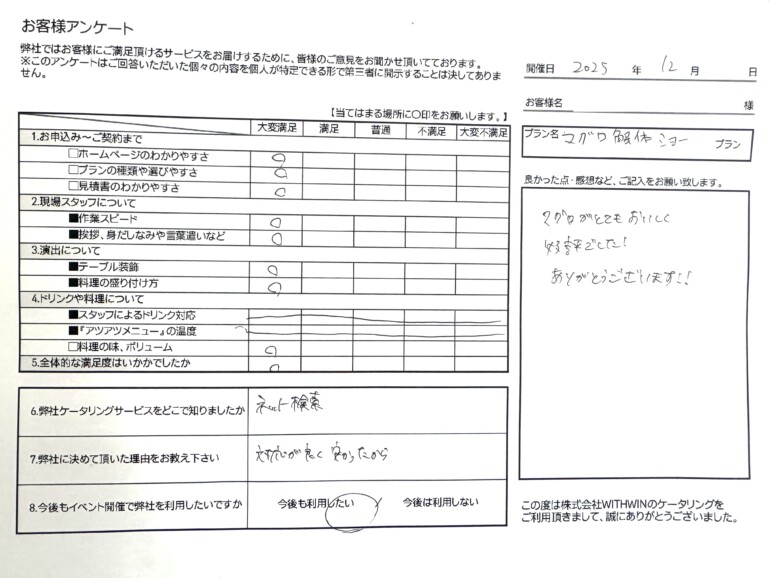 お客様アンケート
弊社ではお客様にご満足頂けるサービスをお届けするために、皆様のご意見をお聞かせ頂いております。
※このアンケートはご回答いただいた個々の内容を個人が特定できる形で第三者に開示することは決してありま
せん。
開催日 2025 年 12 月 日
お客様名 様
プラン名 マグロ解体ショー プラン
【当てはまる場所に〇印をお願いします。】
大変満足 満足 普通 不満足 大変不満足
1.お申込み～ご契約まで
□ホームページのわかりやすさ
□プランの種類や選びやすさ
□見積書のわかりやすさ
2.現場スタッフについて
■作業スピード
■挨拶、身だしなみや言葉遣いなど
3.演出について
■テーブル装飾
■料理の盛り付け方
4.ドリンクや料理について
■スタッフによるドリンク対応
■『アツアツメニュー』の温度
□料理の味、ボリューム
5.全体的な満足度はいかかでしたか
6.弊社ケータリングサービスをどこで知りましたか ネット検索
7.弊社に決めて頂いた理由をお教え下さい 対応が良く 安かったから
8.今後もイベント開催で弊社を利用したいですか 今後も利用したい / 今後は利用しない
良かった点・感想など、ご記入をお願い致します。
マグロがとてもおいしく
好評でした!
ありがとうございます!!
この度は株式会社WITHWINのケータリングを
ご利用頂きまして、誠にありがとうございました。